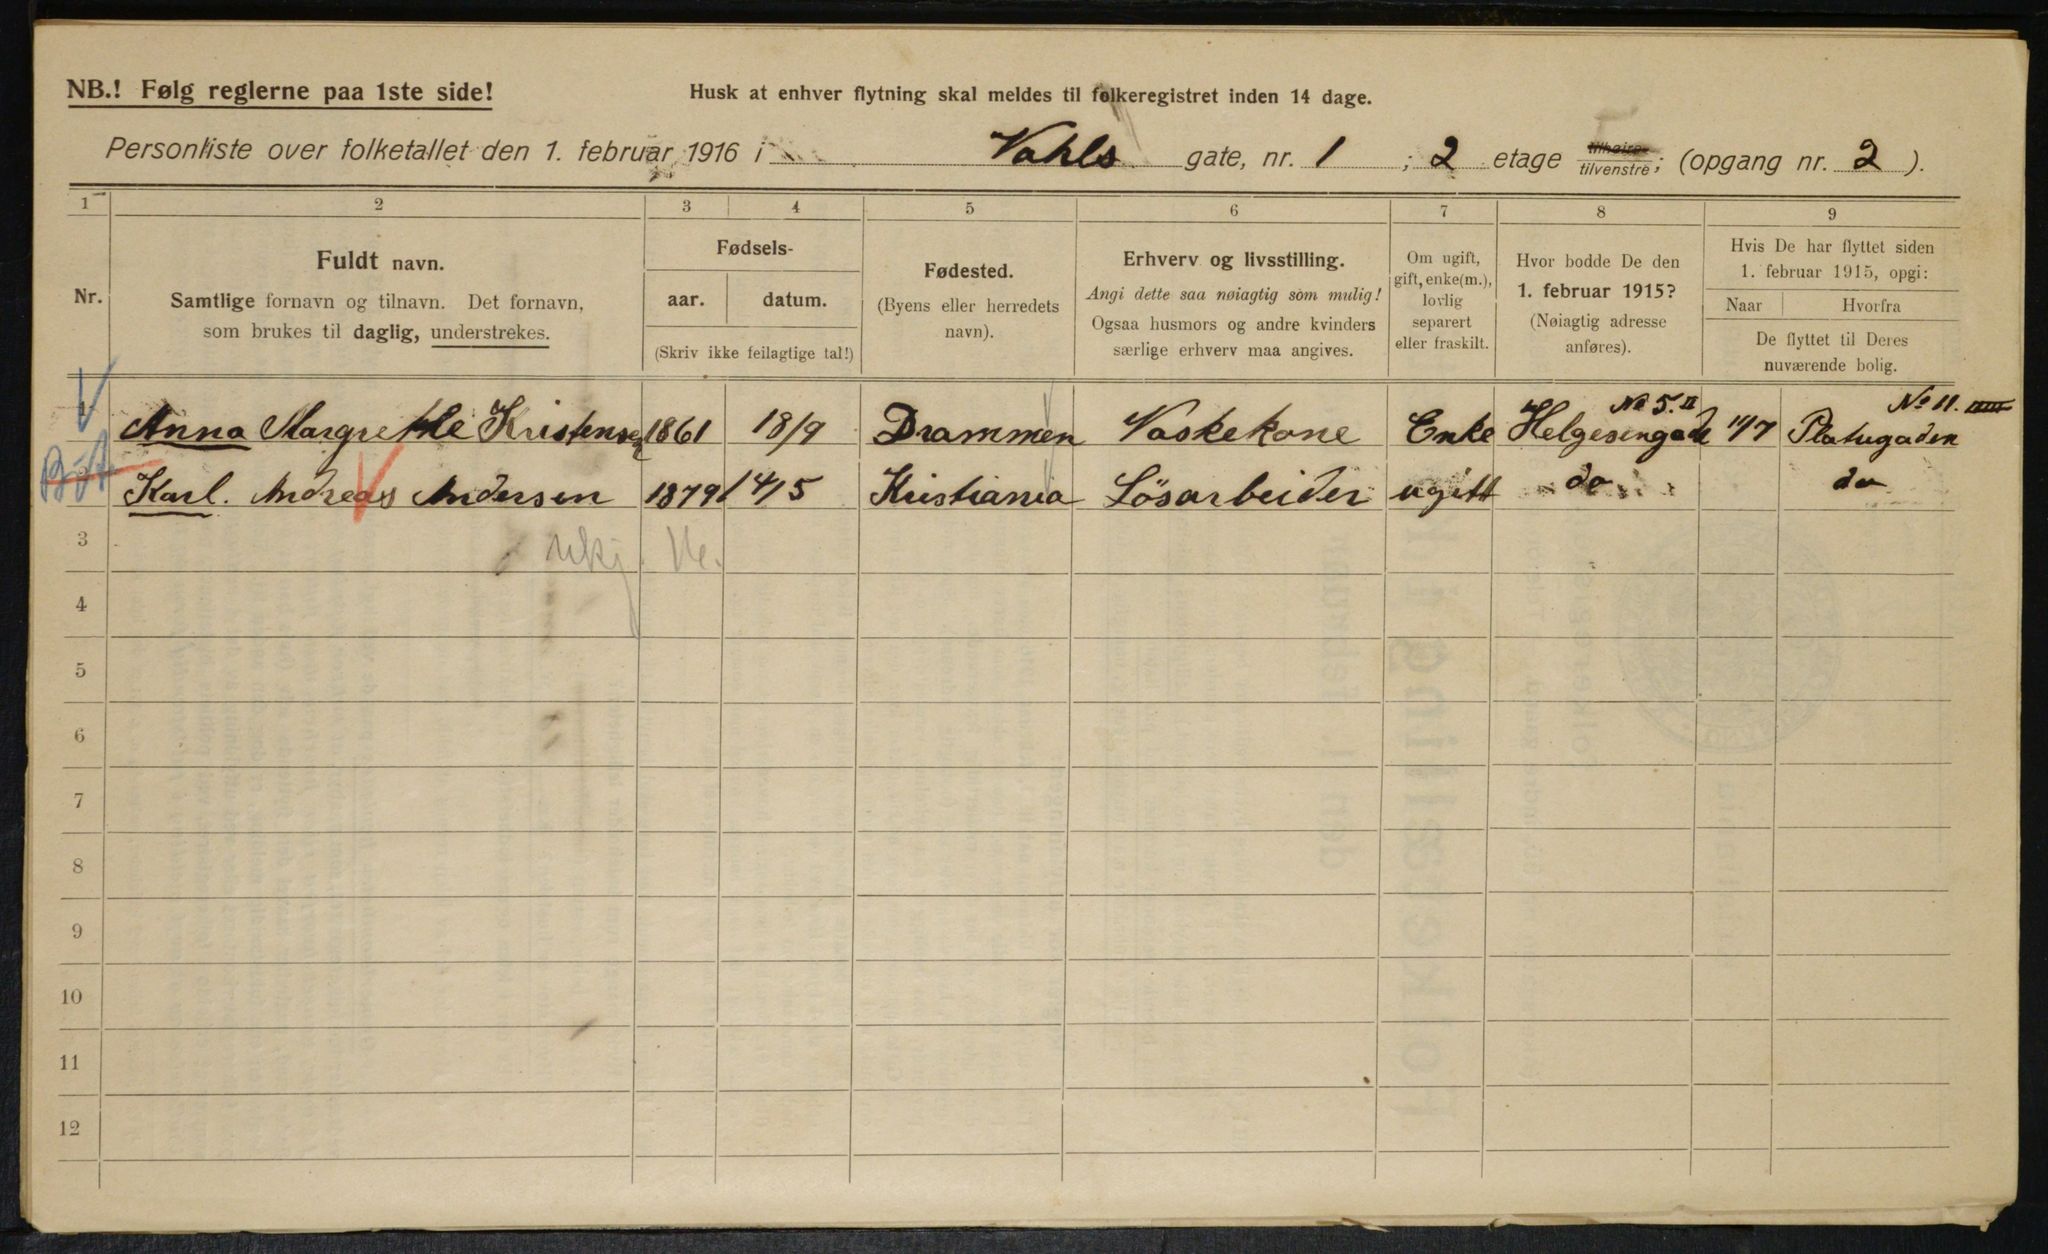 NB.! Følg reglerne paa 1ste side!
Husk at enhver flytning skal meldes til folkeregistret inden 14 dage.
Personliste over folketallet den 1. februar 1916 i Vahls gate, nr. 1 ; 2 etage tilhøire tilvenstre; (opgang nr. 2 ).
1 2 3 4 5 6 7 8 9
Nr.
Fuldt navn.
Samtlige fornavn og tilnavn. Det fornavn,
som brukes til daglig, understrekes.
Fødsels-
aar. datum.
(Skriv ikke feilagtige tal!)
Fødested.
(Byens eller herredets
navn).
Erhverv og livsstilling.
Angi dette saa nøiagtig som mulig!
Ogsaa husmors og andre kvinders
særlige erhverv maa angives.
Om ugift,
gift, enke(m.),
lovlig
separert
eller fraskilt.
Hvor bodde De den
1. februar 1915?
(Nøiagtig adresse
anføres).
Hvis De har flyttet siden
1. februar 1915, opgi:
Naar Hvorfra
De flyttet til Deres
nuværende bolig.
No 5. II No 11. IIII
1 Anna Margrethe Kristensen 1861 18/9 Drammen Vaskekone Enke Helgesengade Platugaden
2 Karl. Andreas Andersen 1879 14/5 Kristiania Lösarbeider ugift do do
3
4
5
6
7
8
9
10
11
12